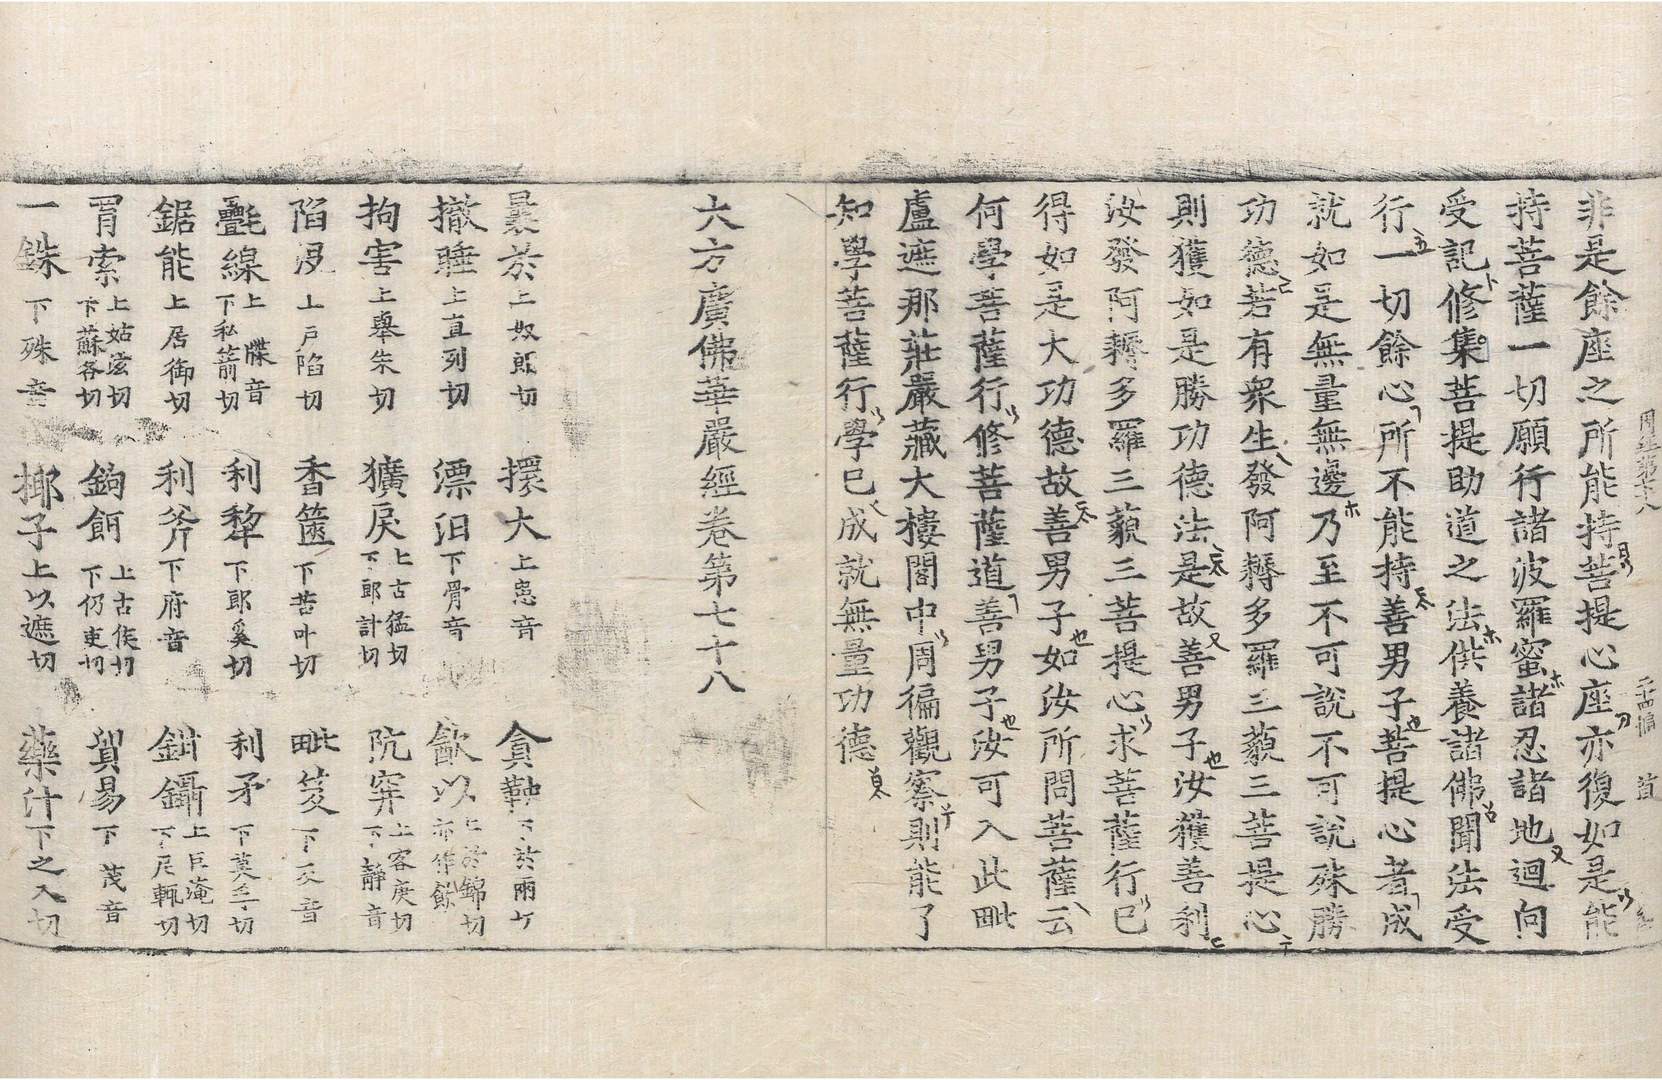 周經第七十八
二十四幅
非是餘座之所能持菩提心座亦復如是能
持菩薩一切願行諸波羅蜜諸忍諸地迴向
受記修集菩提助道之法供養諸佛聞法受
行一切餘心所不能持善男子菩提心者成
就如是無量無邊乃至不可說不可說殊勝
功德若有衆生發阿耨多羅三藐三菩提心
則獲如是勝功德法是故善男子汝獲善利
汝發阿耨多羅三藐三菩提心求菩薩行已
得如是大功德故善男子如汝所問菩薩云
何學菩薩行修菩薩道善男子汝可入此毗
盧遮那莊嚴藏大樓閣中周徧觀察則能了
知學菩薩行學已成就無量功德
大方廣佛華嚴經卷第七十八
曩於上奴郎切 擐大上患音 貪鞅下於兩切
撤睡上直列切 漂汩下骨音 飮以上於錦切亦作飲
拘害上舉朱切 獷戾上古猛切下郎計切 阬穽上客庚切下靜音
陷沒上戶陷切 香篋下苦叶切 毗笈下及音
氎線上牒音下私箭切 利犂下郎奚切 利矛下莫浮切
鋸能上居御切 利斧下府音 鉗鑷上巨淹切下尼輒切
罥索上姑泫切下蘇各切 鉤餌上古侯切下仍吏切 貿易下茂音
一銖下殊音 椰子上以遮切 藥汁下之入切